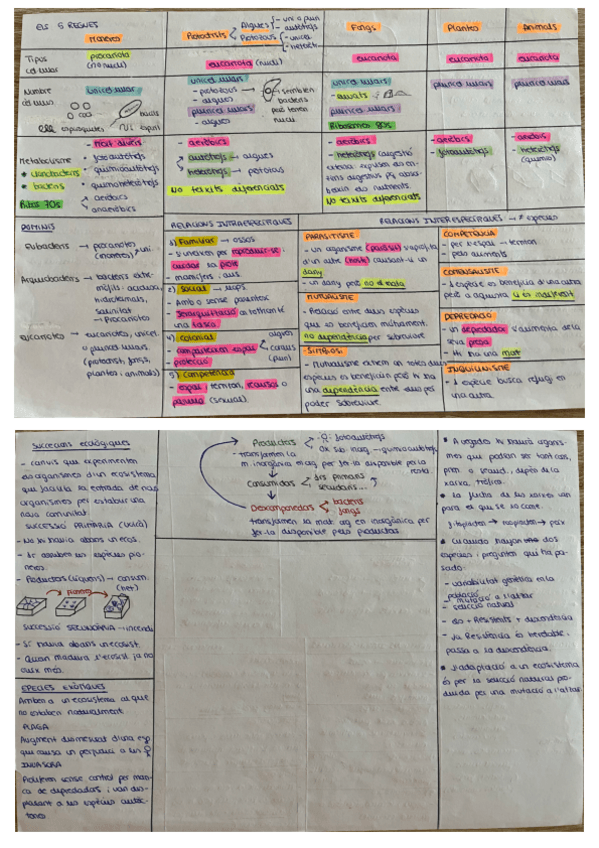 ELS 5 REGNES
MONERES
Protoctists
Algues
- uni o pluri
- autòtrofs
Protozous
- unicel
- heterot.
Fongs
Plantes
Animals
Tipus
cèl·lules
procariota
(no nucli)
eucariota (nucli)
eucariota
eucariota
eucariota
Nombre
cèl·lules
unicel·lular
espiroquetes
bacils
unicel·lulars
- protozous
- algues
pluricel·lulars
- algues
semblen
bacteris
però tenen
nucli
unicel·lulars
pluricel·lulars
Ribosomes 80s
pluricel·lulars
pluricel·lulars
Metabolisme
bacteris
Ribos 70s
- Molt divers
• fotoautòtrofs
• quimioautòtrofs
• quimioheteròtrofs
• aeròbics
anaeròbics
- aeròbics
autòtrofs → algues
heteròtrofs → protozous
No teixits diferenciats
- aeròbics
- heteròtrofs
No teixits diferenciats
- aeròbics
- fotoautòtrofs
- aeròbis
- heteròtrofs
(quimio)
DOMINIS
Eubacteris → procariotes
Arqueobacteris → bacteris extre-
mòfils. acidesa,
hidrotermals,
salinitat
→ Procariotes
eucariotes → eucariotes, unicel.
o pluricel·lulars.
(protoctist, fongs,
plantes i animals)
RELACIONS INTRAESPECÍFIQUES
1) Familiar → ossos
- S'uneixen per reproduir-se i
cuidar la prole
- mamífers i aus.
2) Social → llops.
- Amb o sense parentesc
4) colonial
- comparteixen espai
protecció
algues
coralls
(pluri)
5) Competència
- espai, territori, recursos o
parella (sexual)
RELACIONS INTERESPECÍFIQUES → ≠ espècies
PARASITISME
- un organisme (paràsit) s'aprofita
d'un altre (host) causant-li un
dany
- un dany però no el mata
MUTUALISME
- Relació entre dues espècies
que es beneficien mútuament.
no dependència per sobreviure
SIMBIOSI
- Mutualisme extrem on totes dues
espècies es beneficien però hi ha
una dependència entre dues per
poder sobreviure
COMPETÈNCIA
- per l'espai → territori
- pels aliments
COMENSALISME
- 1 espècie es beneficia d'una altra
però a aquesta li és indiferent
DEPREDACIÓ
- un depredador s'alimenta de la
seva presa
- Hi ha una mort
INQUILINISME
- 1 espècie busca refugi en
una altra.
SUCCESSIONS ECOLÒGIQUES
- canvis que experimenten
els organismes d'un ecosistema
que facilita la entrada de nous
organismes per establir una
nova comunitat
SUCCESSIÓ PRIMÀRIA
- No hi havia abans un ecos.
neres.
- Productors (líquens) → consum.
(het)
SUCCESSIÓ SECUNDÀRIA → incendi
- Sí havia abans un ecosist.
- Quan madura l'ecosist. ja no
ESPÈCIES EXÒTIQUES
Arriben a un ecosistema al que
no estaben naturalment
PLAGA
Augment desmesurat d'una esp
que causa un perjudici a l'ésser
INVASORA
Proliferen sense control per man-
ca de depredadors i van des-
plaçant a les espècies autòc-
tones
Productors
fotoautòtrofs
quimioautòtrofs
- transformen la
m. inorgànica en org. per fer-la disponible per la
resta.
Consumidors
primaris
secundaris...
Descomponedors
bacteris
fongs
transformen la mat. org en inorgànica per
fer-la disponible pels productors
• A vegades hi haurà organis-
mes que podran ser tant cons.
prim o second, depèn de la
xarxa tròfica.
• La fletxa de les xarxes van
para el que se lo come.
• Cuando hayan dos
especies i pregunten què ha pa-
sado:
- variabilitat genètica en la
població
- mutació a l'atzar
- selecció natural
- els + Resistents + descendència
- la Resistència és heredable,
passa a la descendència.
• L'adaptació a un ecosistema
és per la selecció natural pro-
duïda per una mutació a l'atzar.